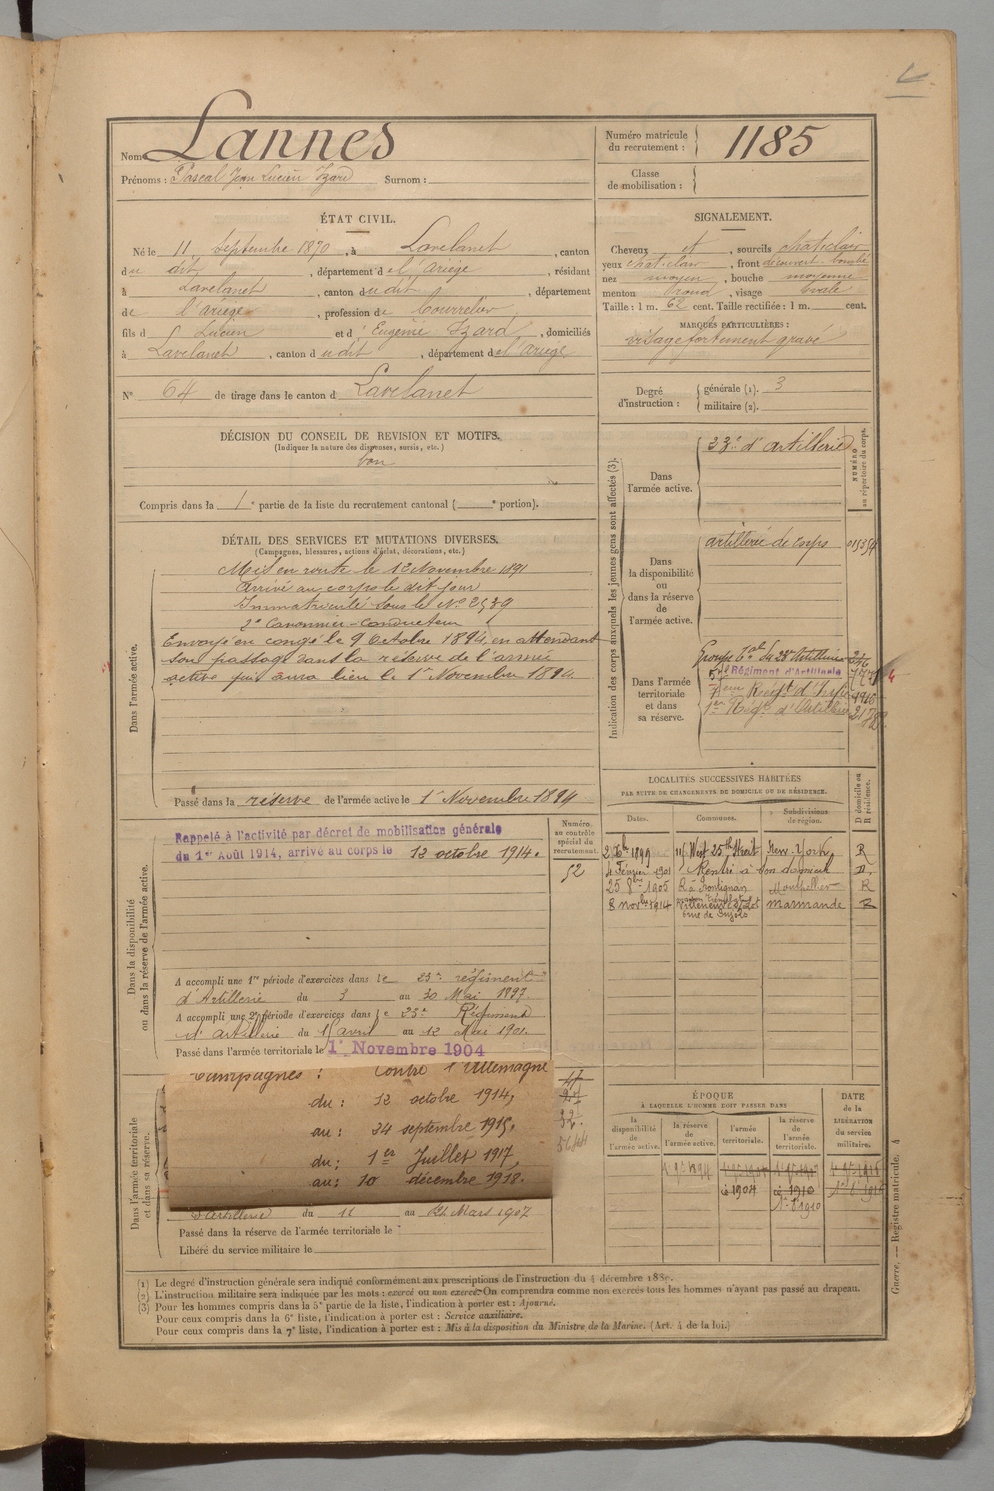 Nom Lannes
Prénoms : Pascal Jean Lucien Izard Surnom :
Numéro matricule du recrutement : 1185
Classe de mobilisation :
ÉTAT CIVIL.
Né le 11 Septembre 1870, à Lavelanet, canton
du dit, département de l'Ariège, résidant
à Lavelanet, canton du dit, département
de l'ariège, profession de Courrelier
fils d Lucien et d'Eugénie Izard, domiciliés
à Lavelanet, canton du dit, département de l'ariège
N° 64 de tirage dans le canton d Lavelanet
SIGNALEMENT.
Cheveux et, sourcils chat-clair
yeux chat-clair, front découvert bombé
nez moyen, bouche moyenne
menton rond, visage ovale
Taille : 1 m. 62 cent. Taille rectifiée : 1 m. cent.
MARQUES PARTICULIÈRES :
visage fortement gravé
Degré d'instruction : générale (1). 3
militaire (2).
DÉCISION DU CONSEIL DE REVISION ET MOTIFS.
(Indiquer la nature des dispenses, sursis, etc.)
bon
Compris dans la 1e partie de la liste du recrutement cantonal ( e portion).
DÉTAIL DES SERVICES ET MUTATIONS DIVERSES.
(Campagnes, blessures, actions d'éclat, décorations, etc.)
Dans l'armée active.
Mis en route le 12 Novembre 1891
Arrivé au corps le dit jour
Immatriculé sous le No 2539
2e Canonnier-Conducteur
Envoyé en congé le 9 Octobre 1894, en attendant
son passage dans la réserve de l'armée
active qui aura lieu le 1er Novembre 1894.
Passé dans la réserve de l'armée active le 1er Novembre 1894
Indication des corps auxquels les jeunes gens sont affectés (3).
NUMÉRO au répertoire du corps.
Dans l'armée active.
23e d'artillerie
Dans la disponibilité ou dans la réserve de l'armée active.
artillerie de corps
Dans l'armée territoriale et dans sa réserve.
Régiment d'Artillerie
LOCALITÉS SUCCESSIVES HABITÉES
PAR SUITE DE CHANGEMENTS DE DOMICILE OU DE RÉSIDENCE.
D domicile ou R résidence.
Dates. Communes. Subdivisions de région.
1899 West 25th Street New-York R
4 Février 1901 Rentré à son domicile
25 8bre 1905 R à Frontignan Montpellier R
8 novbre 1914 Villeneuve s/Lot Marmande R
Dans la disponibilité ou dans la réserve de l'armée active.
Numéro au contrôle spécial du recrutement.
52
Rappelé à l'activité par décret de mobilisation générale
du 1er Août 1914, arrivé au corps le 12 octobre 1914.
A accompli une 1re période d'exercices dans le 23e régiment
d'Artillerie du 3 au 30 Mai 1897
A accompli une 2e période d'exercices dans le 23e Régiment
d'artillerie du 15 avril au 12 Mai 1901.
Passé dans l'armée territoriale le 1er Novembre 1904
Dans l'armée territoriale et dans sa réserve.
Campagnes : Contre l'Allemagne
du : 12 octobre 1914,
au : 24 septembre 1915,
du : 1er Juillet 1917,
au : 10 décembre 1918.
d'Artillerie du 11 au 24 Mars 1907
Passé dans la réserve de l'armée territoriale le
Libéré du service militaire le
ÉPOQUE
À LAQUELLE L'HOMME DOIT PASSER DANS
la disponibilité de l'armée active.
la réserve de l'armée active.
l'armée territoriale.
la réserve de l'armée territoriale.
DATE de la LIBÉRATION du service militaire.
1904 1910
(1) Le degré d'instruction générale sera indiqué conformément aux prescriptions de l'instruction du 4 décembre 1889.
(2) L'instruction militaire sera indiquée par les mots : exercé ou non exercé. On comprendra comme non exercés tous les hommes n'ayant pas passé au drapeau.
(3) Pour les hommes compris dans la 5e partie de la liste, l'indication à porter est : Ajourné.
Pour ceux compris dans la 6e liste, l'indication à porter est : Service auxiliaire.
Pour ceux compris dans la 7e liste, l'indication à porter est : Mis à la disposition du Ministre de la Marine. (Art. 4 de la loi.)
Guerre. — Registre matricule. 4